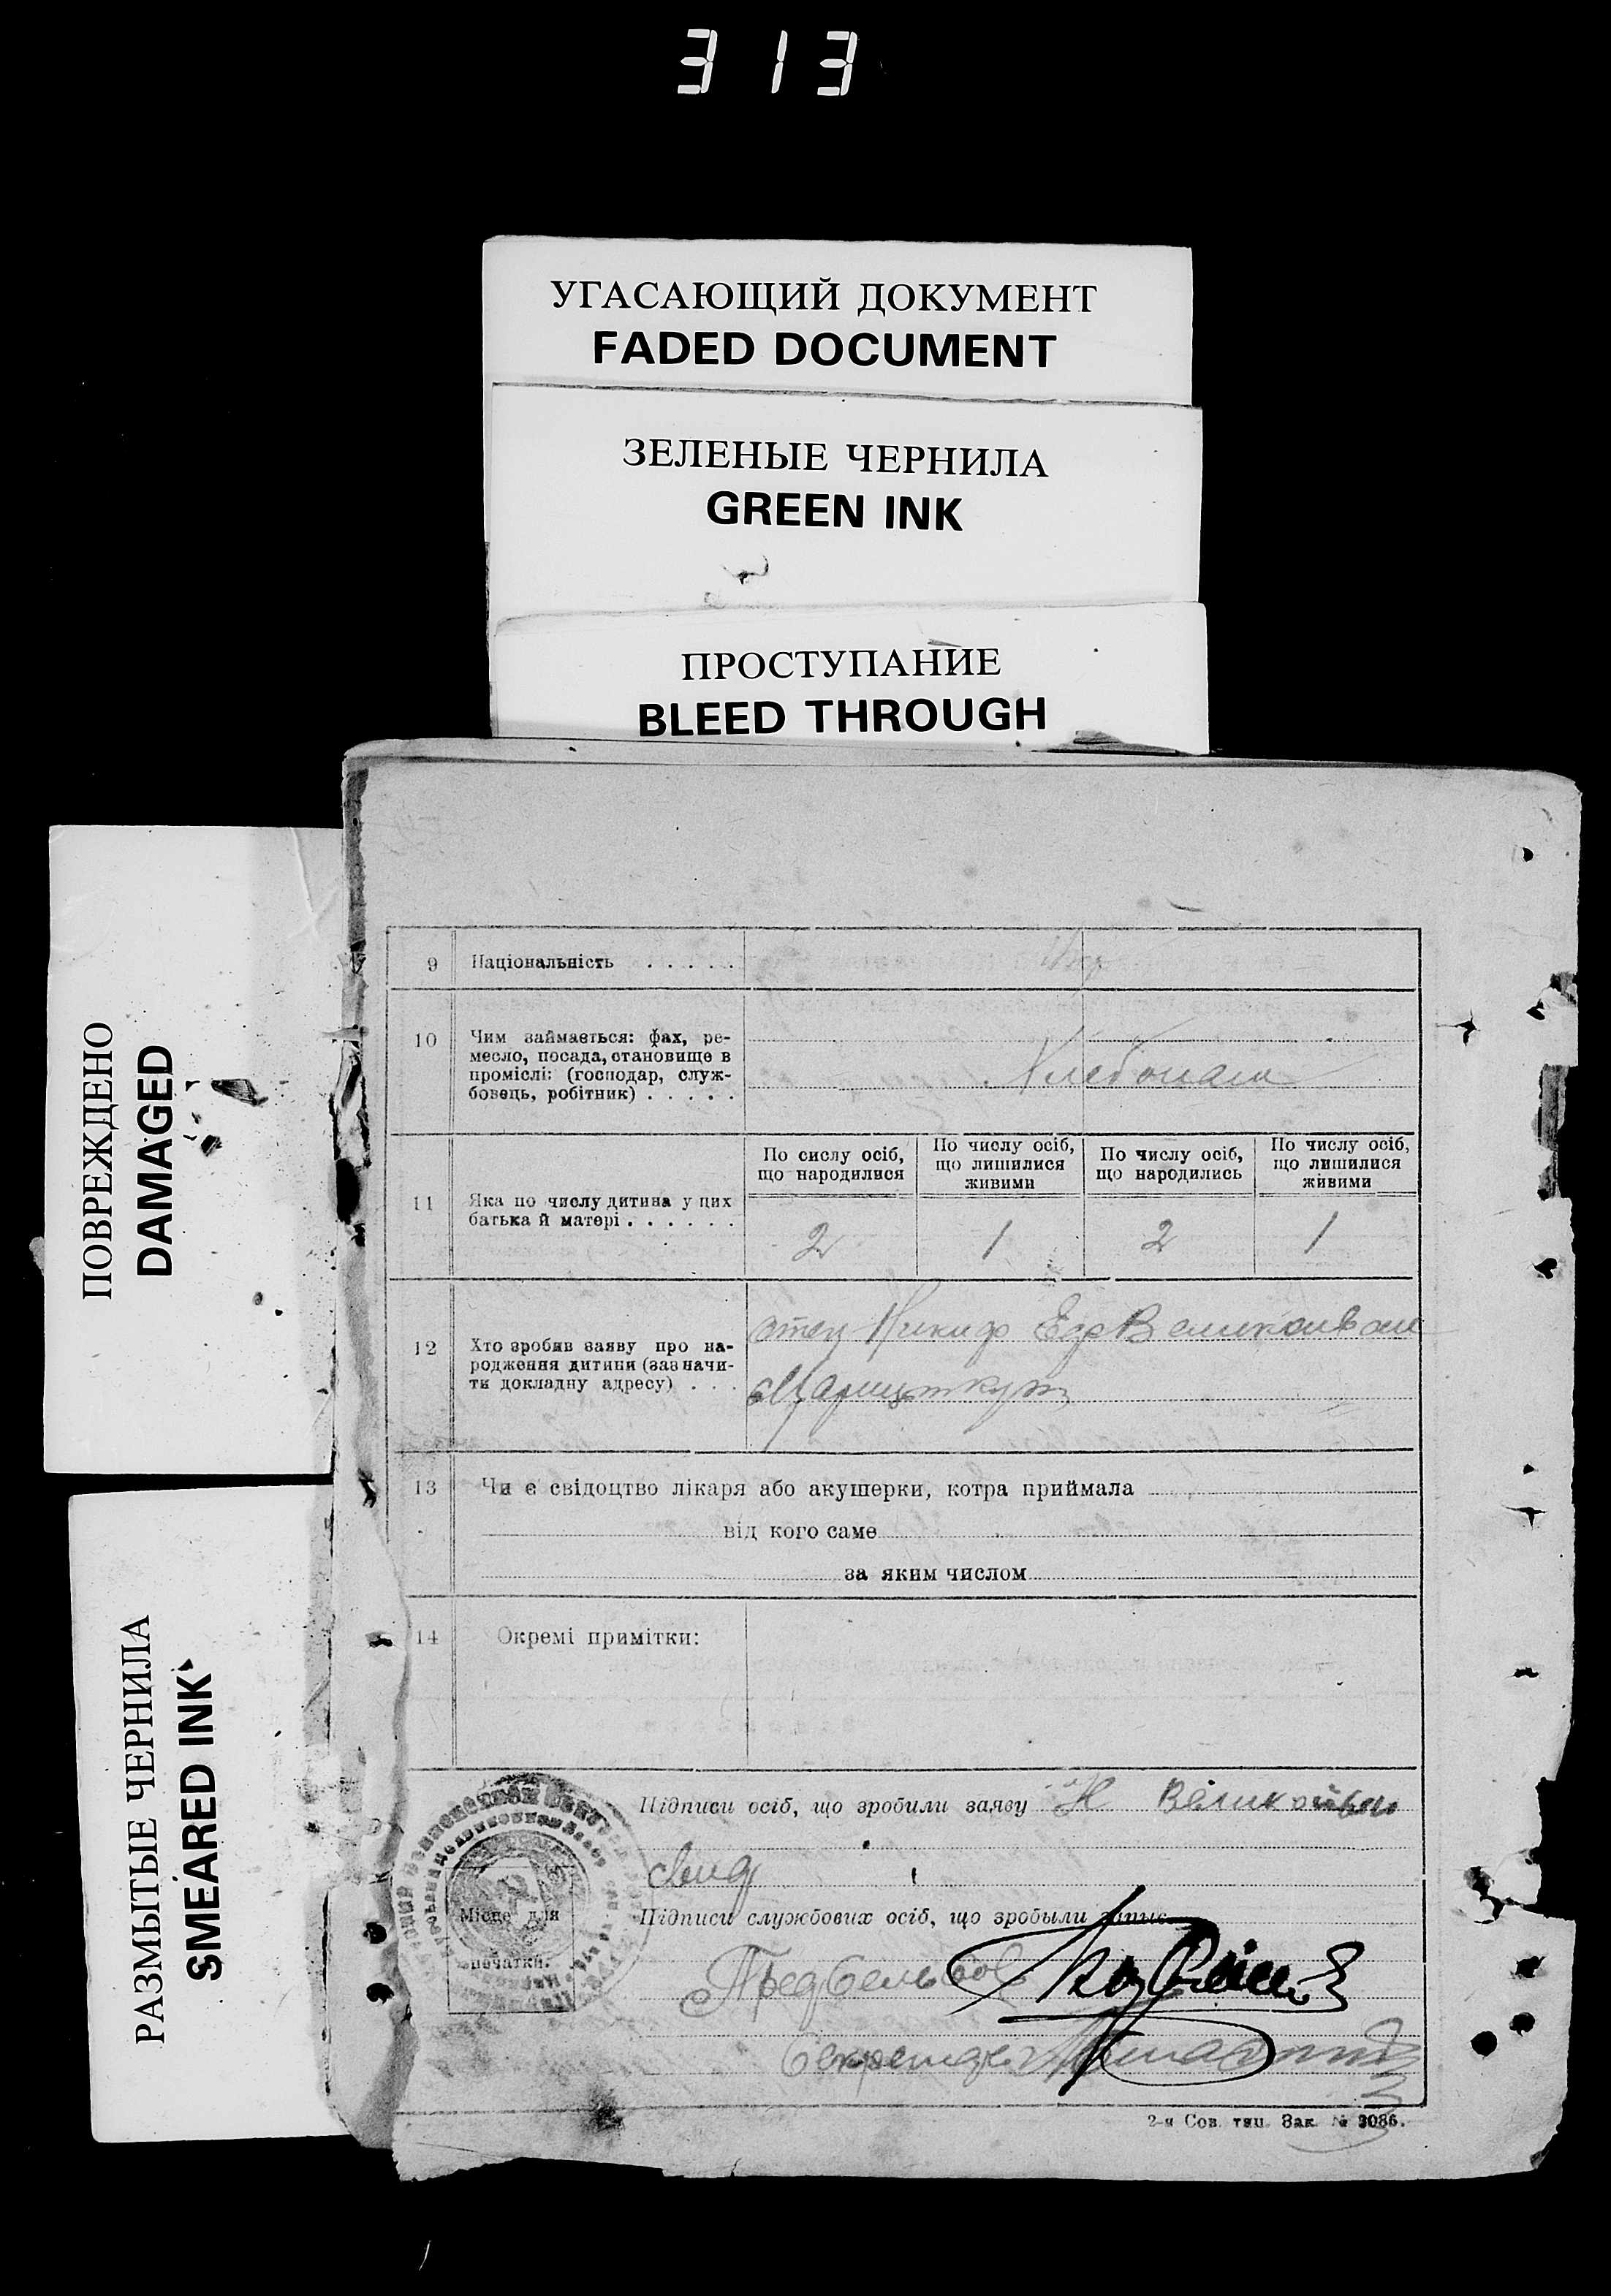 313
УГАСАЮЩИЙ ДОКУМЕНТ
FADED DOCUMENT
ЗЕЛЕНЫЕ ЧЕРНИЛА
GREEN INK
ПРОСТУПАНИЕ
BLEED THROUGH
ПОВРЕЖДЕНО
DAMAGED
РАЗМЫТЫЕ ЧЕРНИЛА
SMEARED INK
9 Національність . . . . .
Укр
10 Чим займається: фах, ре-
месло, посада, становище в
проміслі: (господар, служ-
бовець, робітник) . . . . .
Хлебопаш
11 Яка по числу дитина у цих
батька й матері . . . . . .
По сислу осіб,
що народилися
По числу осіб,
що лишилися
живими
По числу осіб,
що народились
По числу осіб,
що лишилися
живими
2 1 2 1
12 Хто зробив заяву про на-
родження дитини (зазначи-
ти докладну адресу) . . .
отец Никиф
13 Чи є свідоцтво лікаря або акушерки, котра приймала
від кого саме
за яким числом
14 Окремі примітки:
Місце для
печатки.
Підписи осіб, що зробили заяву Н
Підписи службових осіб, що зробыли запис
Пред
Секретарь
2-я Сов. тип. Зак. № 3086.